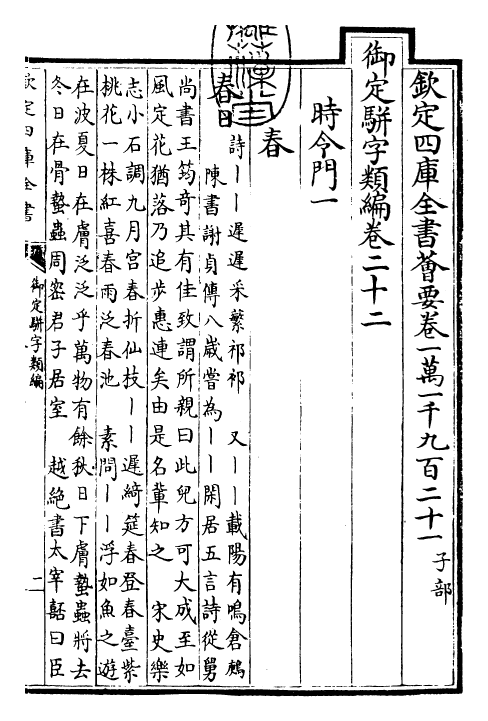 欽定四庫全書薈要卷一萬一千九百二十一 子部
御定駢字類編卷二十二
時令門一
春
春日 詩ーー遲遲采蘩祁祁 又ーー載陽有鳴倉鶊
陳書謝貞傳八歲嘗為ーー閑居五言詩從舅
尚書王筠奇其有佳致謂所親曰此兒方可大成至如
風定花猶落乃追步惠連矣由是名輩知之 宋史樂
志小石調九月宮春折仙枝ーー遲綺筵春登春臺紫
桃花一株紅喜春雨泛春池 素問ーー浮如魚之遊
在波夏日在膚泛泛乎萬物有餘秋日下膚蟄蟲將去
冬日在骨蟄蟲周密君子居室 越絶書太宰嚭曰臣
欽定四庫全書
御定駢字類編
二